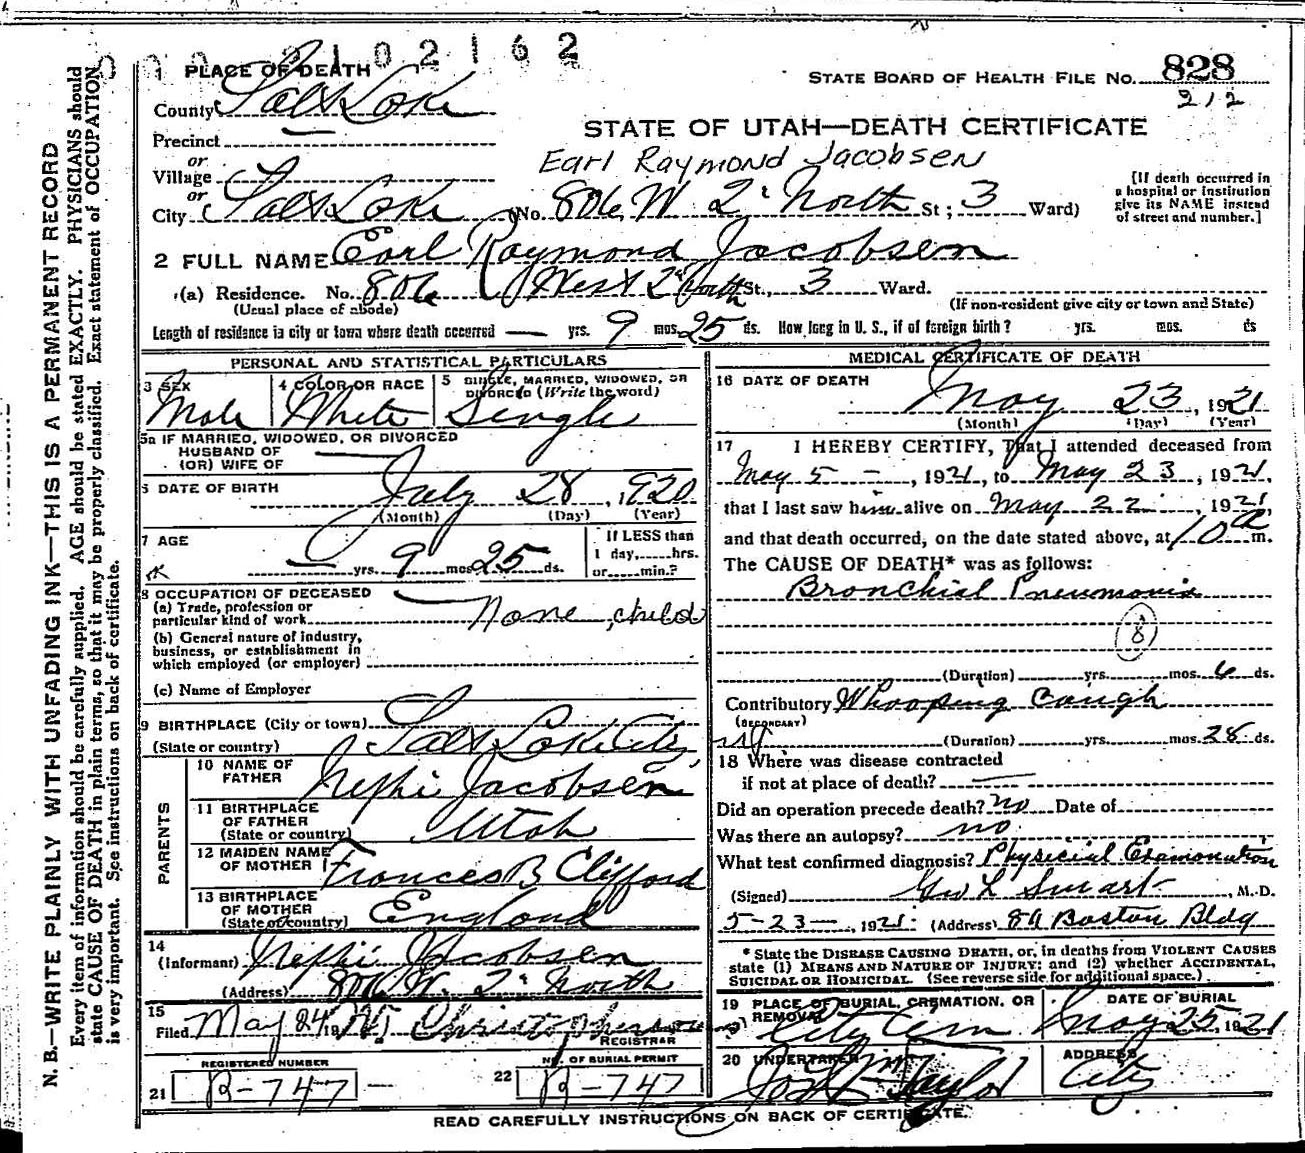 2102162
1 PLACE OF DEATH
STATE BOARD OF HEALTH FILE NO. 828
County Salt Lake
212
Precinct
STATE OF UTAH—DEATH CERTIFICATE
or
Village
Earl Raymond Jacobsen
or
City Salt Lake (No. 806 W 2d North St; 3 Ward)
[If death occurred in a hospital or institution give its NAME instead of street and number.]
2 FULL NAME Earl Raymond Jacobsen
(a) Residence. No. 806 West 2d North St., 3 Ward.
(Usual place of abode) (If non-resident give city or town and State)
Length of residence in city or town where death occurred — yrs. 9 mos. 25 ds. How long in U. S., if of foreign birth? yrs. mos. ds
PERSONAL AND STATISTICAL PARTICULARS
3 SEX
Male
4 COLOR OR RACE
White
5 SINGLE, MARRIED, WIDOWED, OR DIVORCED (Write the word)
Single
5a IF MARRIED, WIDOWED, OR DIVORCED
HUSBAND OF
(OR) WIFE OF
6 DATE OF BIRTH July 28, 1920
(Month) (Day) (Year)
7 AGE
— yrs. 9 mos. 25 ds.
If LESS than
1 day,......hrs.
or......min.?
8 OCCUPATION OF DECEASED
(a) Trade, profession or
particular kind of work None, child
(b) General nature of industry,
business, or establishment in
which employed (or employer)
(c) Name of Employer
9 BIRTHPLACE (City or town) Salt Lake City
(State or country)
PARENTS
10 NAME OF
FATHER Nephi Jacobsen
11 BIRTHPLACE
OF FATHER
(State or country) Utah
12 MAIDEN NAME
OF MOTHER Frances B Clifford
13 BIRTHPLACE
OF MOTHER
(State or country) England
14
(Informant) Nephi Jacobsen
(Address) 806 W. 2d North
15
Filed May 24 19 Christopherson
REGISTRAR
REGISTERED NUMBER
21 B-747
NO. OF BURIAL PERMIT
22 B-747
MEDICAL CERTIFICATE OF DEATH
16 DATE OF DEATH
May 23, 1921
(Month) (Day) (Year)
17 I HEREBY CERTIFY, That I attended deceased from
May 5 —, 1921, to May 23, 1921,
that I last saw him alive on May 22, 1921,
and that death occurred, on the date stated above, at 10 a m.
The CAUSE OF DEATH* was as follows:
Bronchial Pneumonia
(8)
(Duration) yrs. mos. 6 ds.
Contributory Whooping Cough
(SECONDARY)
(Duration) yrs. mos. 28 ds.
18 Where was disease contracted
if not at place of death?
Did an operation precede death? no Date of
Was there an autopsy? no
What test confirmed diagnosis? Physicial Examonation
(Signed) Geo L Smart, M. D.
5-23—, 1921. (Address) Boston Bldg
* State the DISEASE CAUSING DEATH, or, in deaths from VIOLENT CAUSES
state (1) MEANS AND NATURE OF INJURY; and (2) whether ACCIDENTAL,
SUICIDAL OR HOMICIDAL. (See reverse side for additional space.)
19 PLACE OF BURIAL, CREMATION, OR
REMOVAL
City Cem
DATE OF BURIAL
May 25, 1921
20 UNDERTAKER
Taylor
ADDRESS
City
READ CAREFULLY INSTRUCTIONS ON BACK OF CERTIFICATE.
N. B.—WRITE PLAINLY WITH UNFADING INK—THIS IS A PERMANENT RECORD
Every item of information should be carefully supplied. AGE should be stated EXACTLY. PHYSICIANS should
state CAUSE OF DEATH in plain terms, so that it may be properly classified. Exact statement of OCCUPATION
is very important. See instructions on back of certificate.